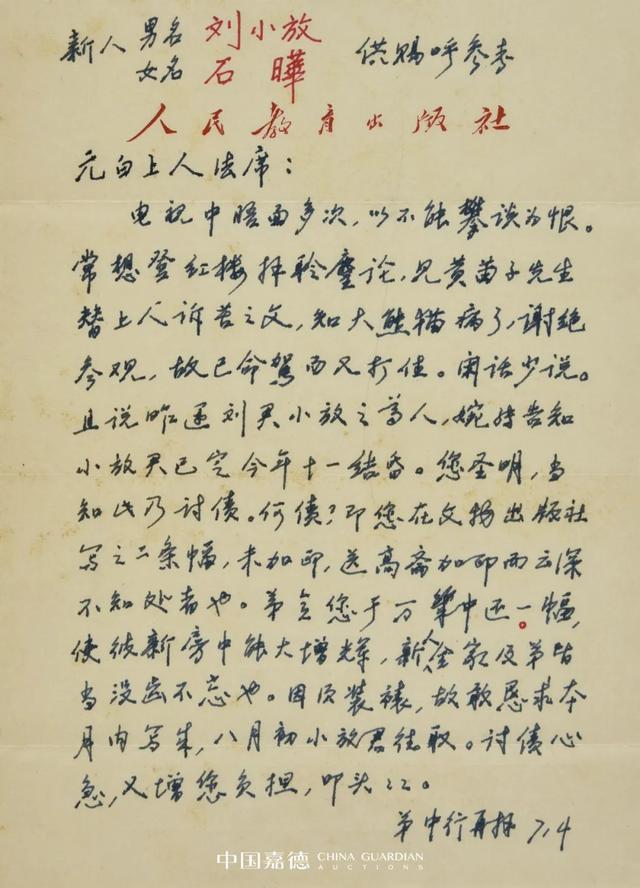 新人 男名 刘小放 供赐呼参考
女名 石晔
人民教育出版社
元白上人法席：
电视中晤面多次，以不能攀谈为恨。
常想登红楼拜聆麈论，见黄苗子先生
替上人诉苦之文，知大熊猫病了，谢绝
参观，故已命驾而又打住。闲话少说。
且说昨遇刘君小放之尊人，婉转告知
小放君已定今年十一结婚。您圣明，当
知此乃讨债。何债？即您在文物出版社
写之二条幅，未加印，送高斋加印而云深
不知处者也。弟意您于万冀中还一幅，
使彼新房中能大增光辉，新人全家及弟皆
当没齿不忘也。因须装裱，故敢恳求本
月内写成，八月初小放君往取。讨债心
急，又增您负担，叩头々々。
弟中行再拜 7.4
中国嘉德 CHINA GUARDIAN
AUCTIONS